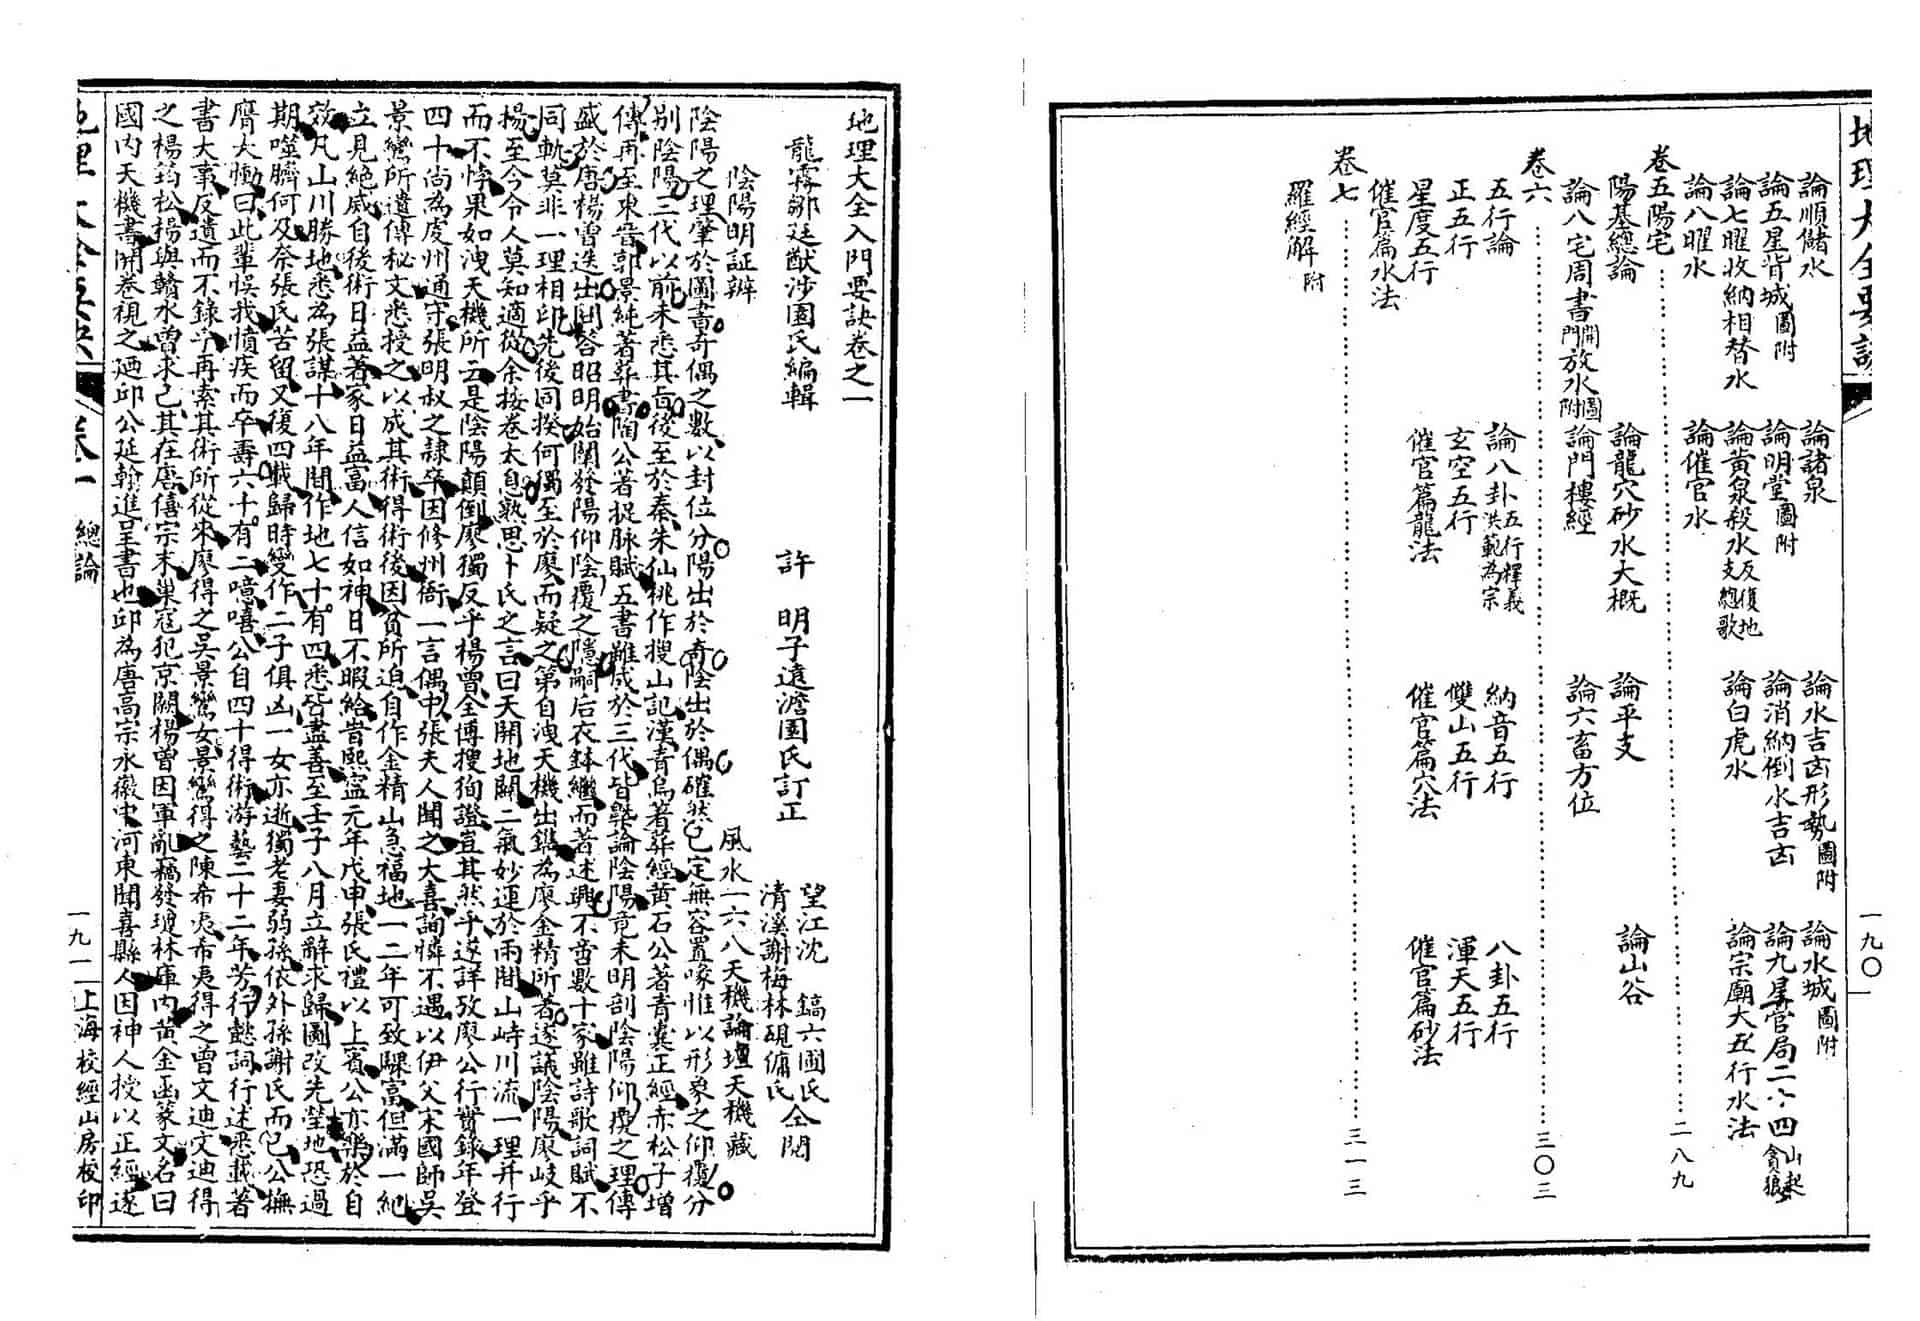 地理大全要訣
一九〇
論順儲水　論諸泉　論水吉凶形勢圖附　論水城圖附
論五星背城圖附　論明堂圖附　論消納倒水吉凶　論九星官局二十四山起貪狼
論七曜收納相替水　論黃泉殺水反復地支總歌　論白虎水　論宗廟大五行水法
論八曜水　論催官水
卷五陽宅……二八九
陽基總論　論龍穴砂水大概　論平支　論山谷
論八宅周書開門放水圖附　論門樓經　論六畜方位
卷六……三〇三
五行論　論八卦五行釋義洪範為宗　納音五行　八卦五行
正五行　玄空五行　雙山五行　渾天五行
星度五行　催官篇龍法　催官篇穴法　催官篇砂法
催官篇水法
卷七……三一三
羅經解附
地理大全入門要訣卷之一
龍霧鄒廷猷涉園氏編輯　許　明子遠澹園氏訂正　望江沈　鎬六圃氏　清溪謝梅林硯傭氏　仝閱
陰陽明証辨　風水一六八天機論壇天機藏
陰陽之理肇於圖書奇偶之數以封位分陽出於奇陰出於偶確然已定無容置喙惟以形象之仰覆分
別陰陽三代以前未悉其旨後至於秦朱仙桃作搜山記漢青烏著葬經黃石公著青囊正經赤松子增
傳再至東晉郭景純著葬書陶公著捉脉賦五書雖成於三代皆槩論陰陽竟未明剖陰陽仰覆之理傳
盛於唐楊曾迭出問答昭明始闡發陽仰陰覆之隱嗣后衣鉢繼而著述興不啻數十家雖詩歌詞賦不
同軌莫非一理相印先後同揆何獨至於廖而疑之第自洩天機出鐫為廖金精所著遂議陰陽廖岐乎
揚至今令人莫知適從余按卷太息熟思卜氏之言曰天開地闢二氣妙運於兩間山峙川流一理并行
而不悖果如洩天機所云是陰陽顛倒廖獨反乎楊曾全傳搜狥證豈其然乎遂詳攷廖公行實錄年登
四十尚為虔州通守張明叔之隷卒因修州衙一言偶中張夫人聞之大喜詢憐不遇以伊父宋國師吳
景鸞所遺傳秘文悉授之以成其術得術後因貧所迫自作金精山急福地一二年可致驟富但滿一紀
立見絕滅自後術日益著家日益富人信如神日不暇給昔熙寧元年戊申張氏禮以上賓公亦樂於自
效凡山川勝地悉為張謀十八年間作地七十有四悉皆盡善至壬子八月立辭求歸圖改先塋地恐過
期噬臍何及奈張氏苦留又復四載歸時變作二子俱凶一女亦逝獨老妻弱孫依外孫謝氏而已公撫
膺大慟曰此輩悞我憤疾而卒壽六十有二噫嘻公自四十得術游藝二十二年芳行懿詞行述悉載著
書大事反遺而不錄乎再索其術所從來廖得之吳景鸞女景鸞得之陳希夷希夷得之曾文迪文迪得
之楊筠松楊與贛水曽求己其在唐僖宗末巢寇犯京闕楊曽因軍亂竊發瓊林庫內黃金函篆文名曰
國內天機書開卷視之廼邱公延翰進呈書也邱為唐高宗永徽中河東聞喜縣人因神人授以正經遂
卷一　總論
一九一
上海校經山房校印